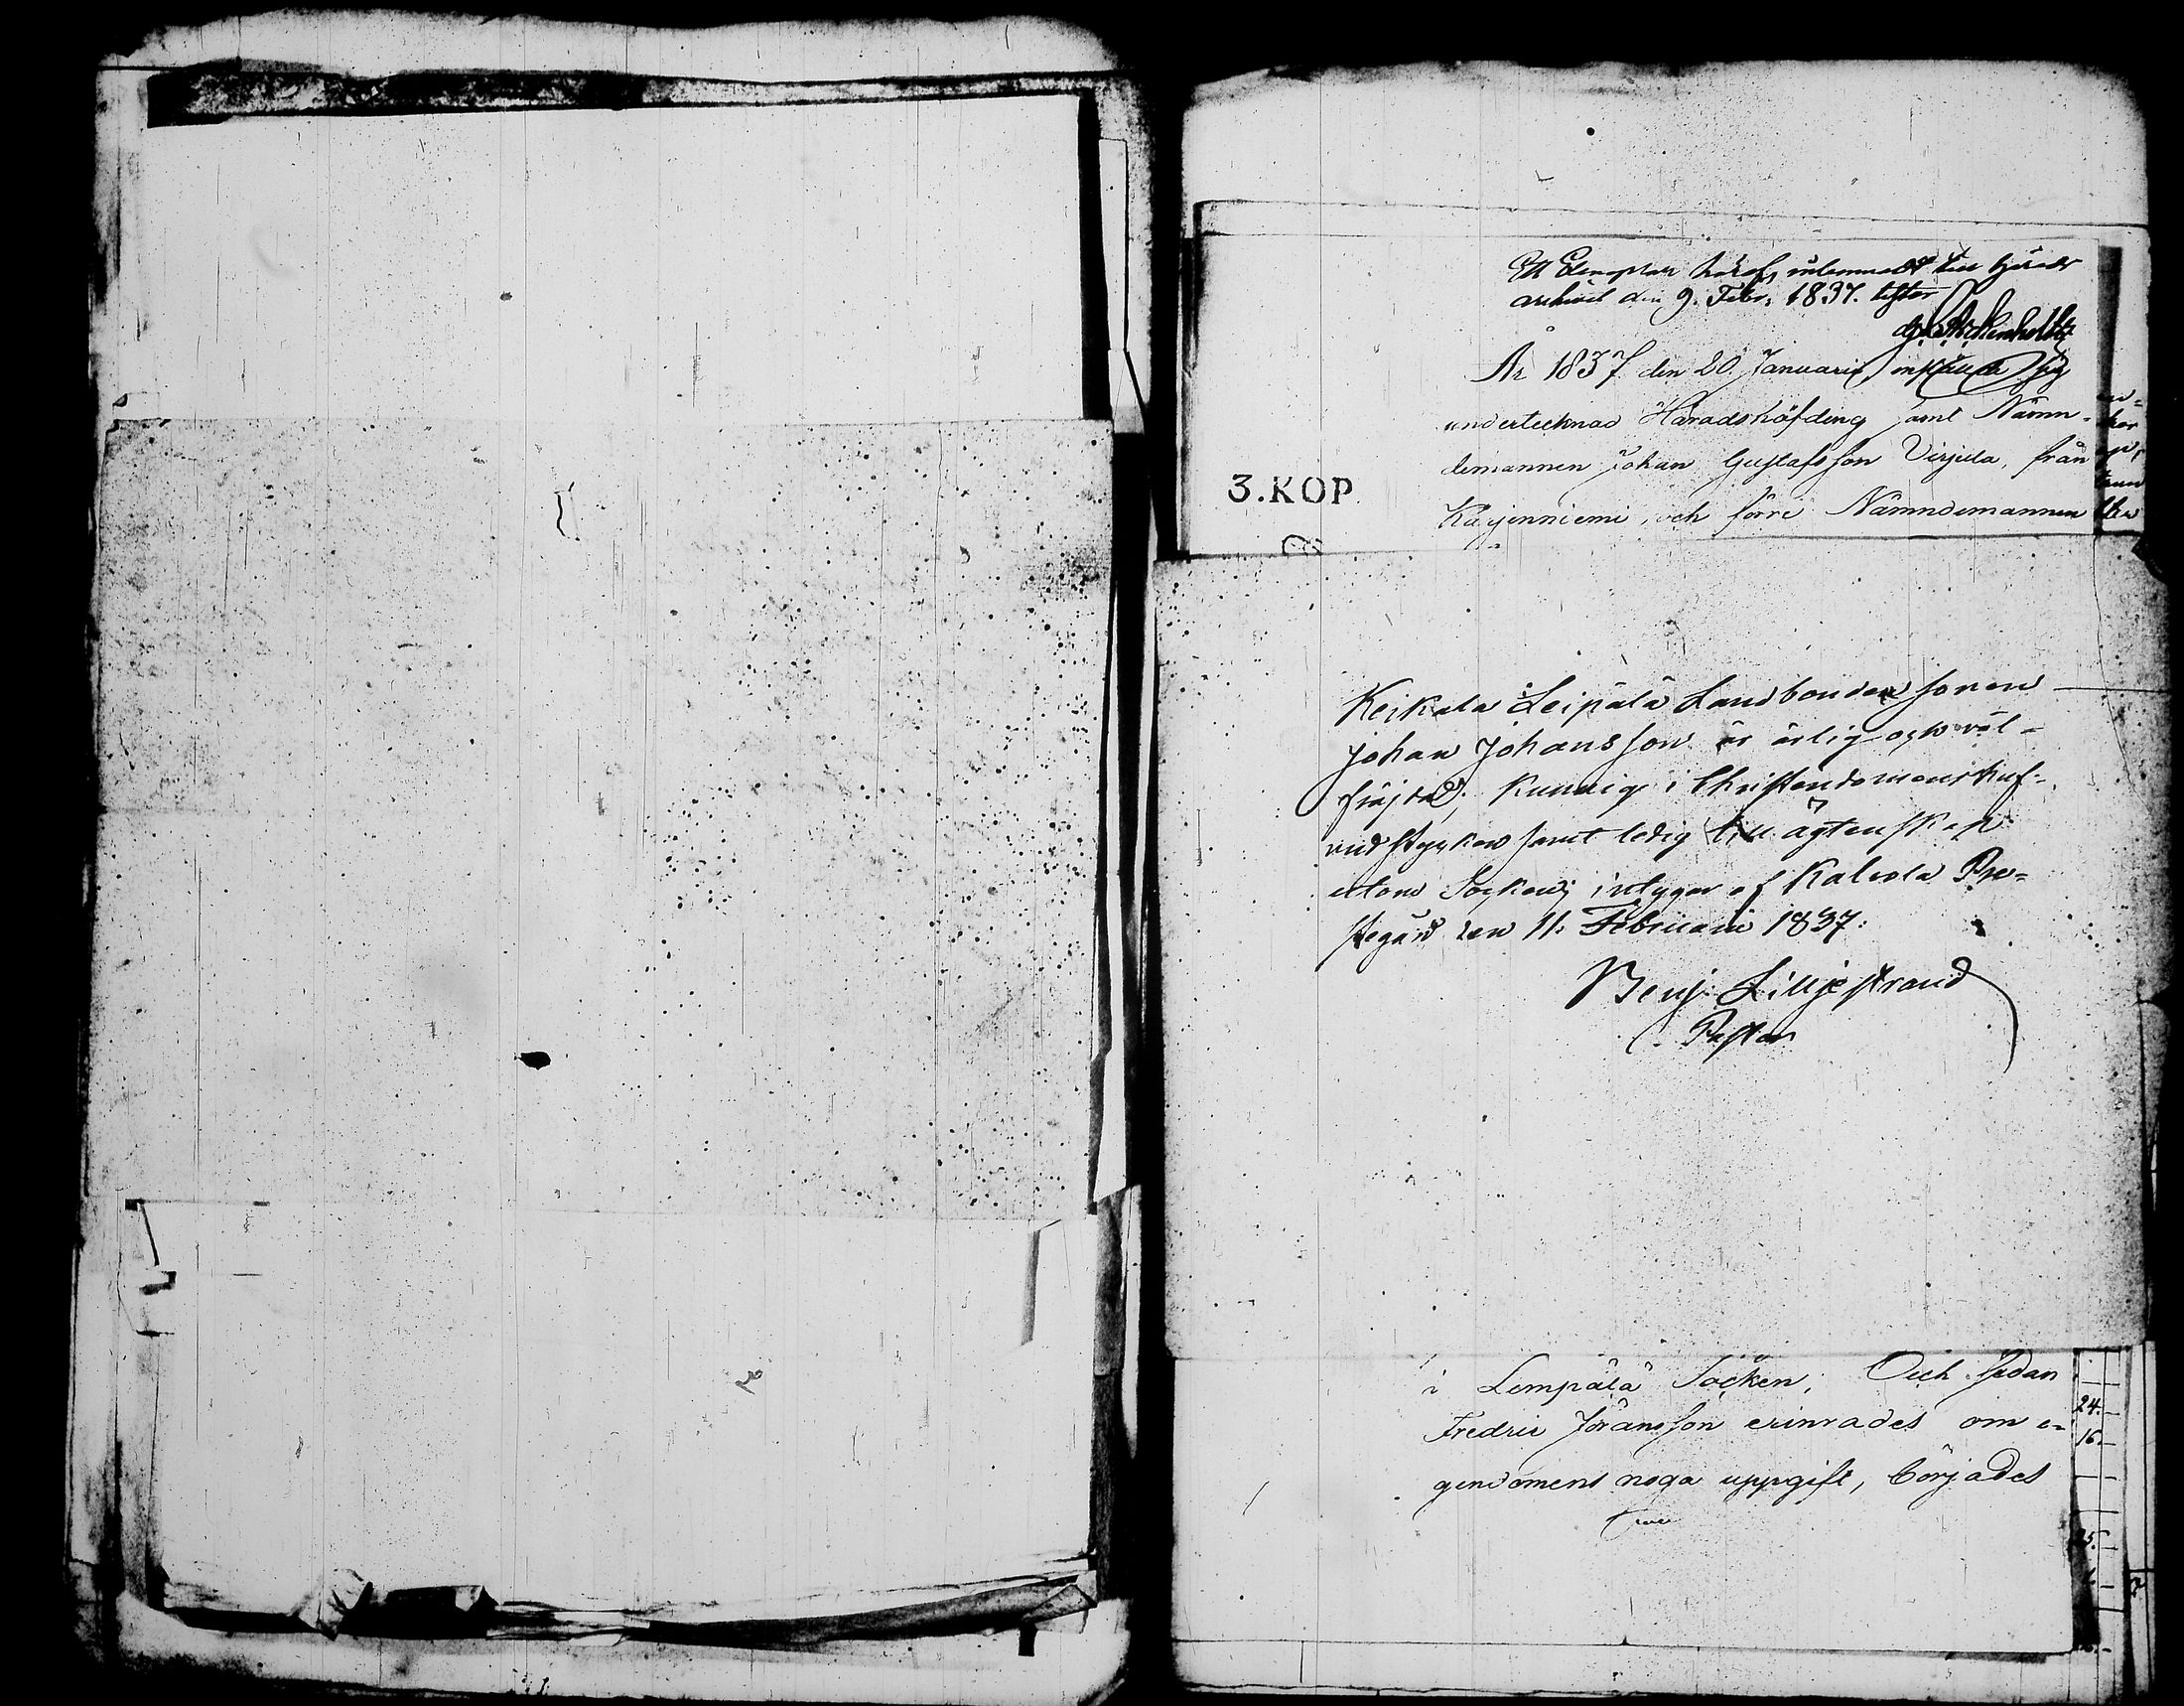 Ett Exemplar häraf, inlemnadt till Härads
archivet den 9. Febr: 1837. testor
År 1837 den 20 Januarii instälde sig
undertecknad Häradshöfding samt Nämn-
demannen Johan Gustafsson Virjula, från
3.KOP.
Kärjenniemi, och förre Nämndemannen
Keikala Leipälä Landbondesonen
Johan Johansson är ärlig och väl-
fräjdad, kunnig i Christendomens huf-
vudstycken samt ledig till ägtenskap
utom Socknen; intygar af Kalvola Pre-
stegård den 11. Februarii 1837.
Benj: Liljestrand
Pastor
i Lempälä Socken; Och sedan
Fredric Jöransson erinrades om e-
gendomens noga uppgift, börjades
24.
16.
25.